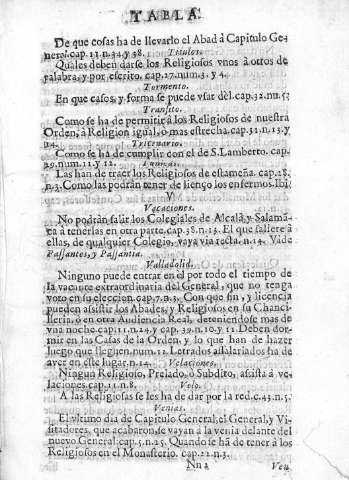 TABLA.
De que cosas ha de llevarlo el Abad à Capitulo Ge-
neral. cap. 11. n. 34. y 38.
Titulos.
Quales deben darse los Religiosos vnos à otros de
palabra, y por escrito. cap. 17. num. 3. y 4.
Tormento.
En que casos, y forma se puede vsar dèl. cap. 32. nu. 5.
Transito.
Como se ha de permitir à los Religiosos de nuestra
Orden, à Religion igual, ò mas estrecha. cap. 31. n. 13. y
14.
Tricenario.
Como se ha de cumplir con el de S. Lamberto. cap.
num. 11. y 12.
Las han de traer los Religiosos de estameña. cap. 18.
n. 3. Como las podràn tener de lienço los enfermos. Ibi.
V
Vacaciones.
No podràn salir los Colegiales de Alcalà, y Salamá-
ca à tenerlas en otra parte. cap. 38. n. 13. El que saliere à
ellas, de qualquier Colegio, vaya via recta. n. 14. Vide
Passantes, y Passantia.
Valladolid.
Ninguno puede entrar en èl por todo el tiempo de
la vacante extraordinaria del General, que no tenga
voto en su eleccion. cap. 7. n. 3. Con que fin, y licencia
pueden assistir los Abades, y Religiosos en su Chanci-
lleria, ò en otra Audiencia Real, deteniendose mas de
vna noche. cap. 11. n. 24. y cap. 39. n. 10. y 11. Deben dor-
mir en las Casas de la Orden, y lo que han de hazer
luego que lleguen. num. 12. Letrados assalariados ha de
aver en este lugar. n. 14.
Velaciones.
Ningun Religioso, Prelado, ò Subdito, assista à ve-
laciones. cap. 11. n. 8.
Velo.
A las Religiosas se les ha de dar por la red. c. 43. n. 5.
Venias.
El vltimo dia de Capitulo General, el General, y Vi-
sitadores, que acabaron, se vayan à la venia delante del
nuevo General. cap. 5. n. 25. Quando se hã de tener à los
Religiosos en el Monasterio. cap. 22. n. 3.
Nn 2
Ven